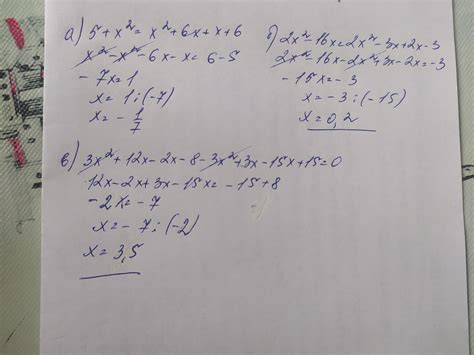 а) 5+x²=x²+6x+x+6
x²-x²-6x-x=6-5
-7x=1
x=1:(-7)
x=-1/7
б) 2x²-16x=2x²-3x+2x-3
2x²-16x-2x²+3x-2x=-3
-15x=-3
x=-3:(-15)
x=0,2
в) 3x²+12x-2x-8-3x²+3x-15x+15=0
12x-2x+3x-15x=-15+8
-2x=-7
x=-7:(-2)
x=3,5